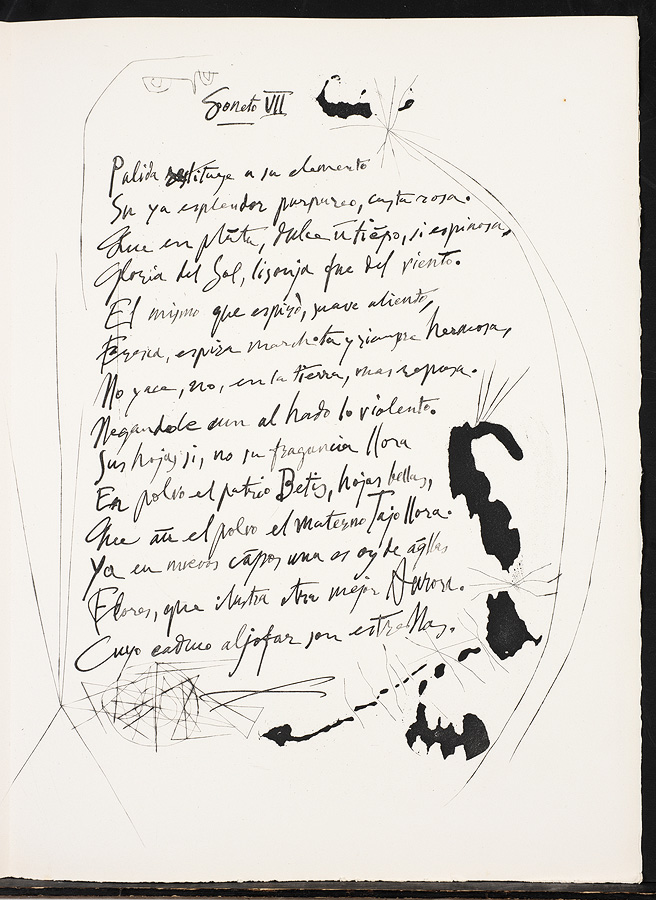 Soneto VII
Palida restituye a su elemento
Su ya esplendor purpureo, casta rosa.
Que en plāta, dulce ūn tiēpo, si espinosa,
Gloria del Sol, lisonja fue del viento.
El mismo que espiró, suave aliento,
Fresca, espira marchita y siempre hermosa,
No yace, no, en la tierra, mas reposa.
Negandole aun al hado lo violento.
Sus hojas si, no su fragancia llora
En polvo el patrio Betis, hojas bellas,
Que aū el polvo el materno Tajo llora.
Ya en nuevos cāpos una es oy de aq̄llas
Flores, que ilustra otra mejor Aurora.
Cuyo caduco aljofar son estrellas.